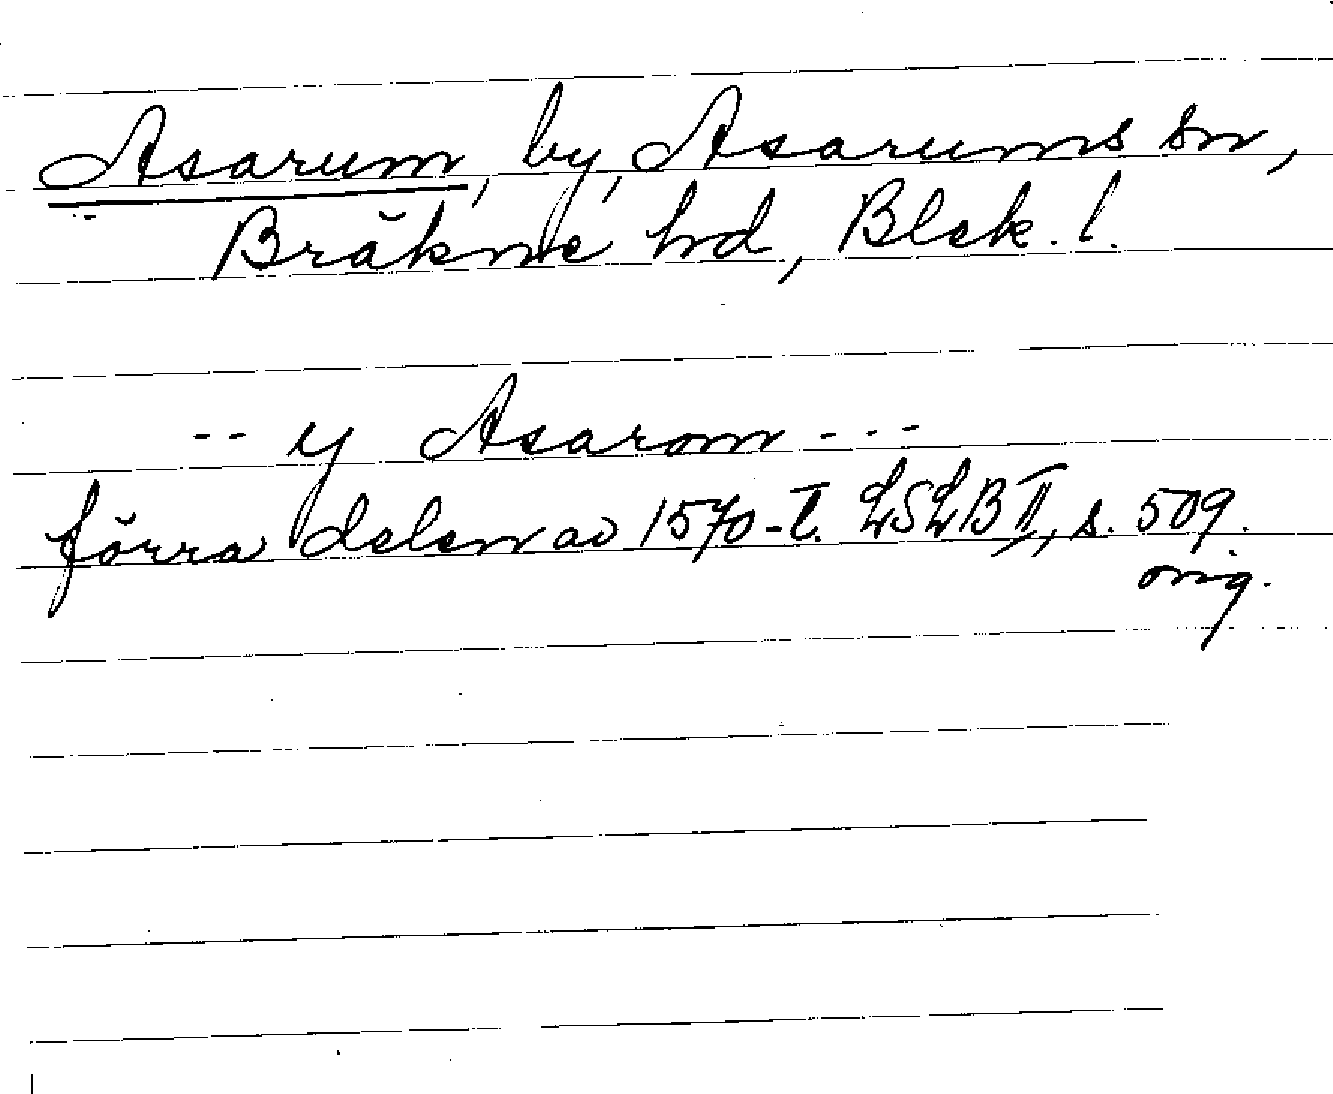 Asarum, by, Asarums sn,
Bräkne hd, Blek. l.
-- y Asarom ---
förra delen av 1570-t. LSLB II, s. 509.
orig.